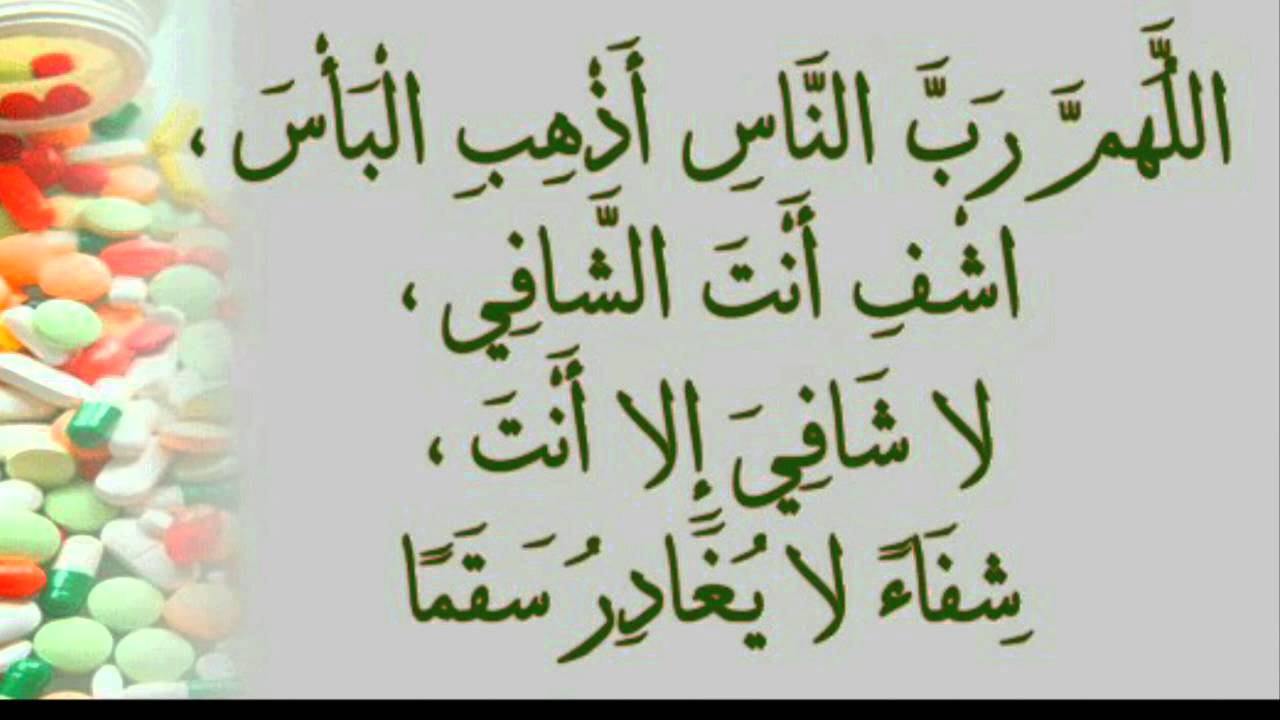 اللَّهُمَّ رَبَّ النَّاسِ أَذْهِبِ الْبَأْسَ ،
اشْفِ أَنْتَ الشَّافِي ،
لا شَافِيَ إِلا أَنْتَ ،
شِفَاءً لا يُغَادِرُ سَقَمًا